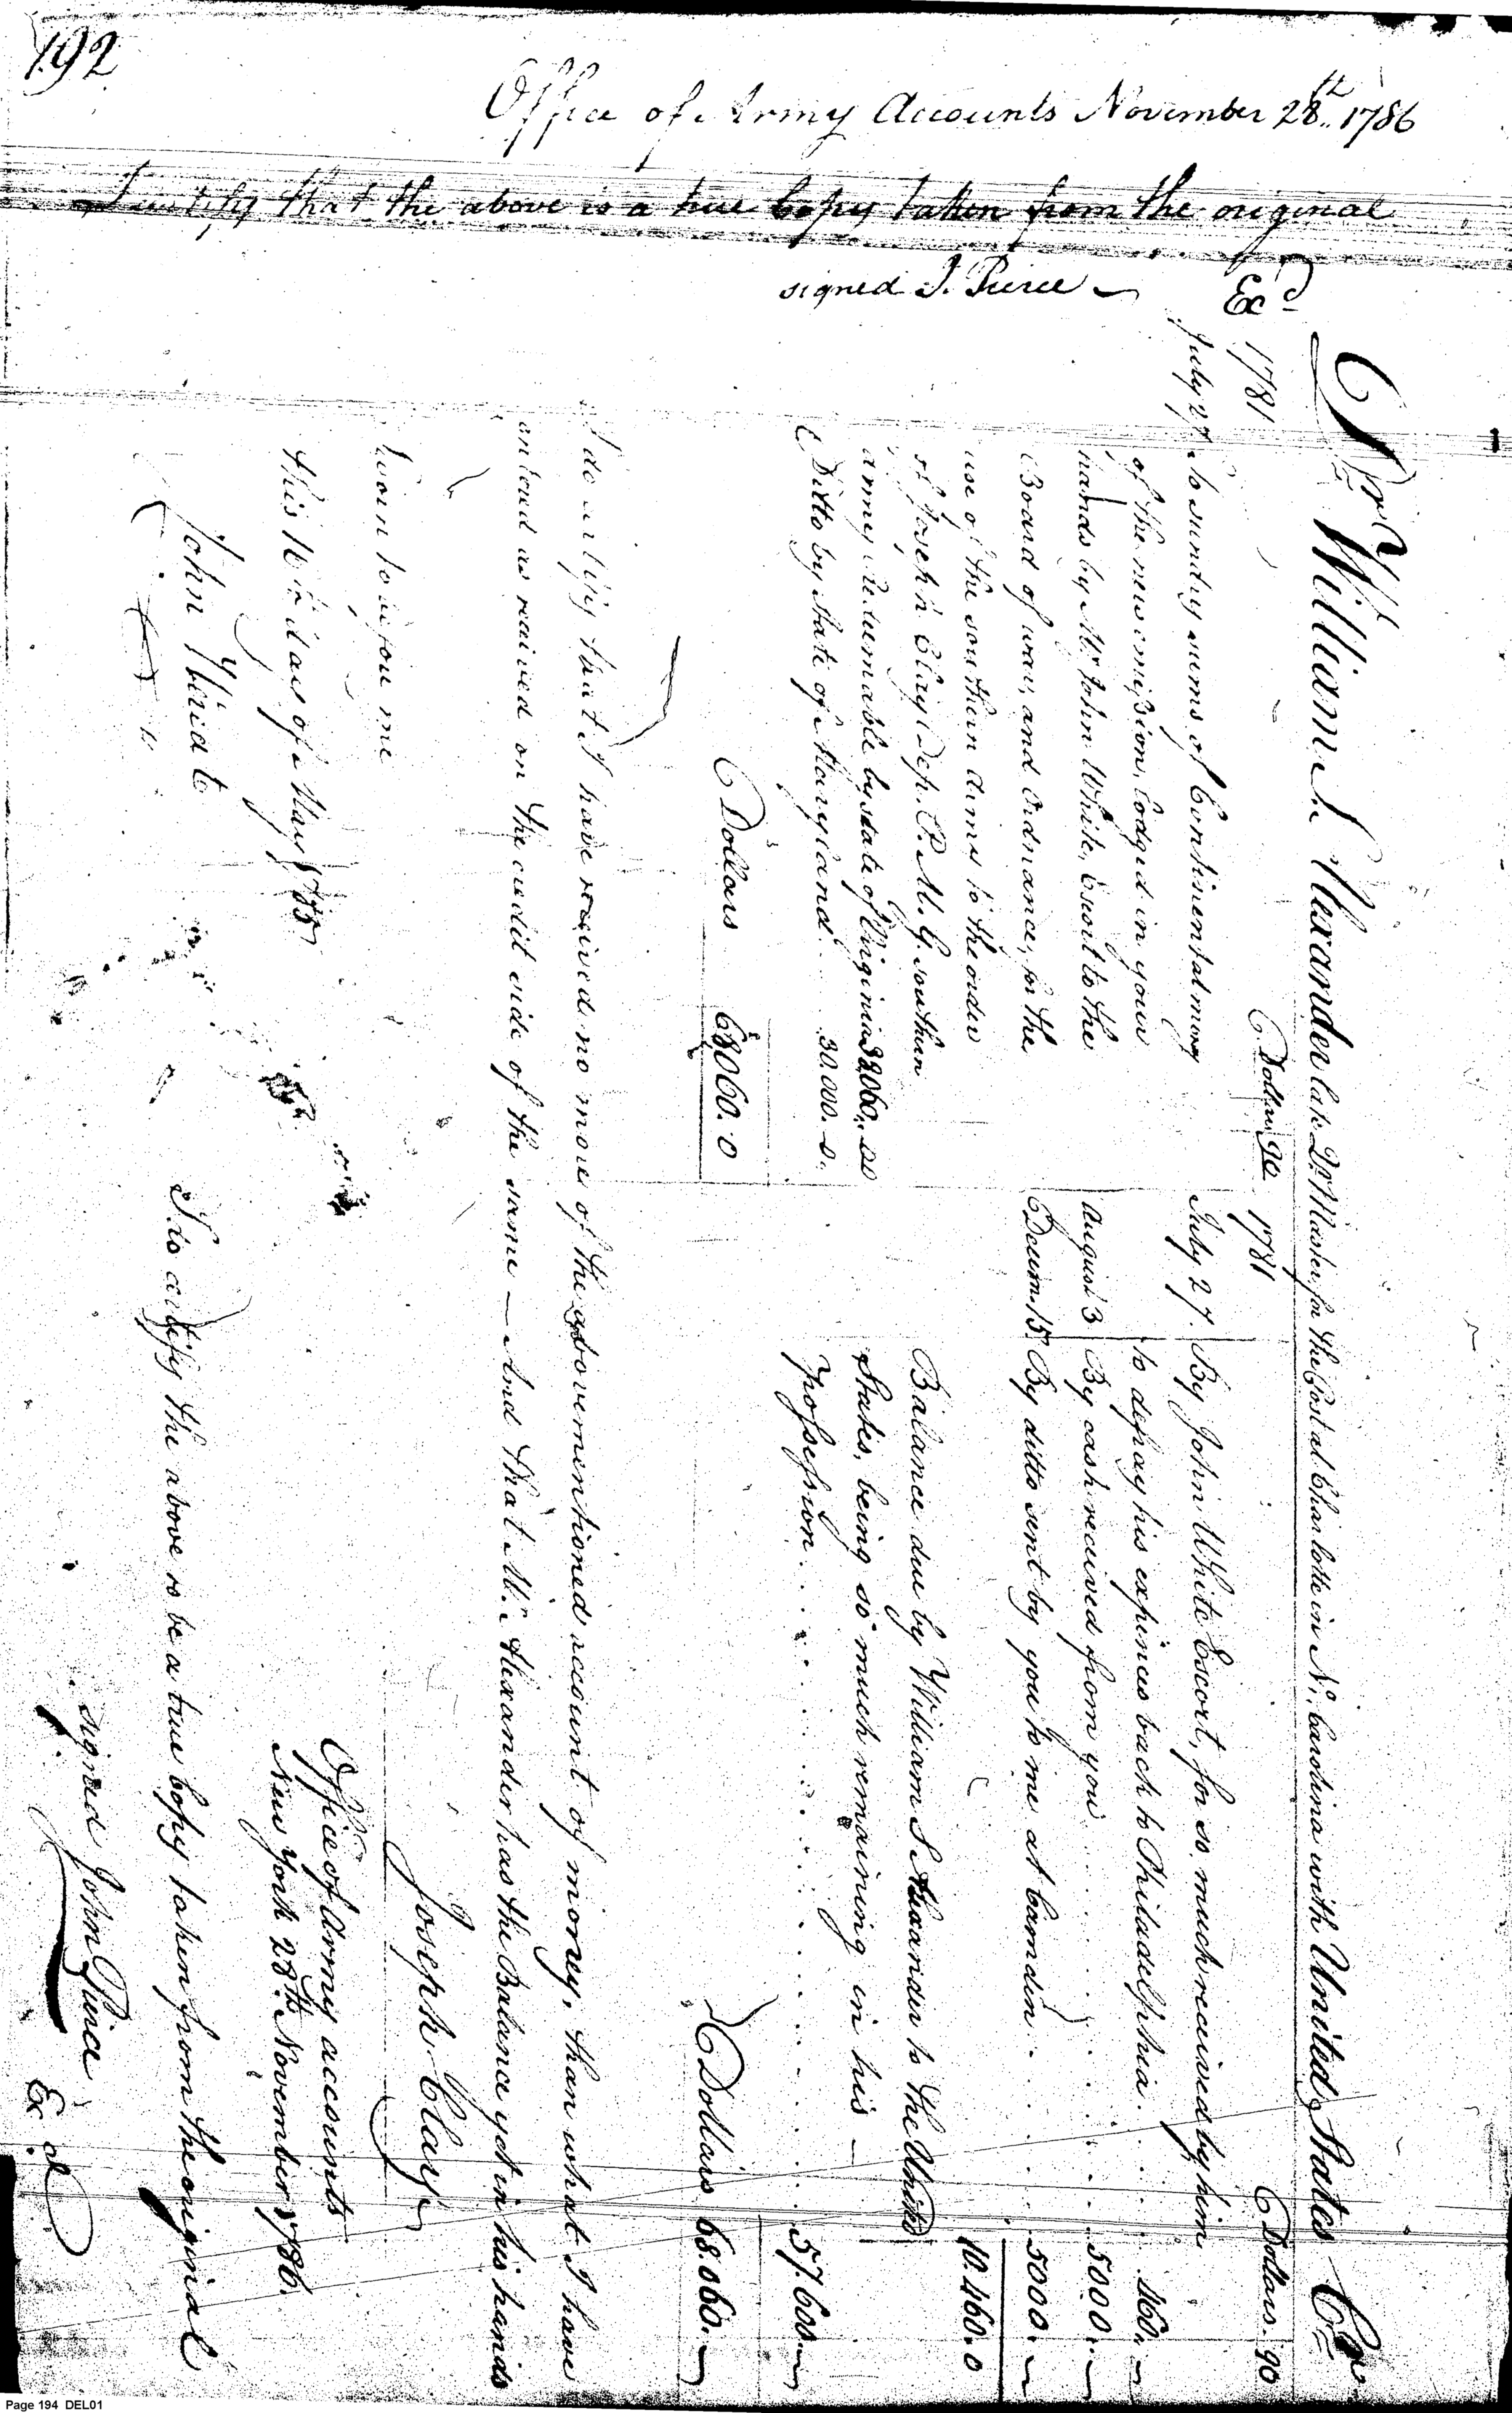 192
Office of Army Accounts November 28th 1786
I certify that the above is a true Copy taken from the original
signed J. Pierce
Exd
Dr William S. Alexander late Qr Master, for the Post at Charlotte in No. Carolina with United States Cr
1781
Dollars 90
July 27. To sundry sums of Continental money
of the new emission, lodged in your
hands by Mr John White, Escort to the
Board of war, and Ordnance, for the
use of the southern army to the order
of Joseph Clay Dep. P. M. G. southern
army redeemable by state of Virginia 38060. 00
Ditto by State of Maryland . . 30.000. 0.
Dollars 68060. 0
1781
Dollars. 90
July 27. By John White Escort, for so much received by him
to defray his expences back to Philadelphia . . . . 460. —
August 3 By cash received from you . . . . 5000. —
Decem. 15. By ditto sent by you to me at Camden . . . . 5000. —
10.460. 0
Balance due by William S. Alexander to the United
States, being so much remaining in his —
possession . . . . 57.600 —
Dollars 68.060. —
I do certify that I have received no more of the abovementioned account of money, than what I have
entered as received on the credit side of the same — And that Mr. Alexander has the Balance yet in his hands
Joseph Clay
Sworn to before me
this 16th day of May 1785
John
Office of Army accounts
New York 28th November 1786.
I do certify the above to be a true Copy taken from the original
signed John Pierce
Exd
Page 194 DEL01